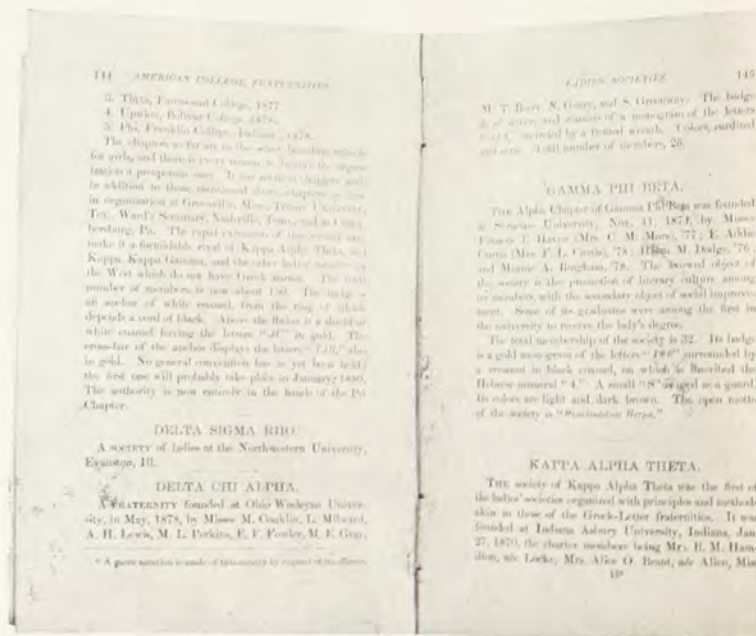 144 AMERICAN COLLEGE FRATERNITIES
3. Theta, Fairmount College, 1877.
4. Upsilon, Bolivar College, 1878.
5. Phi, Franklin College, Indiana, 1878.
The chapters so far are in the
for girls, and there is every reason to the
a prosperous one. It has
in addition to those mentioned above, chapters
in organization at Greenville, Miss., Trinity University,
Tex., Ward's Seminary, Nashville, Tenn., and at
Pa. The rapid extension of this society
make it a formidable rival of Kappa Alpha Theta, and
Kappa Kappa Gamma, and the other
the West which do not have Greek names. The total
number of members is now about 150. The badge is
an anchor of white enamel, from the ring of which
depends a cord of black. Above the flukes is a shield of
white enamel having the letters in gold. The
cross-bar of the anchor displays the letters also
in gold. No general convention has as yet been held;
the first one will probably take place in January, 1880.
The authority is now entirely in the hands of the Psi
Chapter.
DELTA SIGMA RHO.
A SOCIETY of ladies at the Northwestern University,
Evanston, Ill.
DELTA CHI ALPHA.
A FRATERNITY founded at Ohio Wesleyan Univer-
sity, in May, 1878, by Misses M. Conklin, L. Milward,
A. H. Lewis, M. L. Perkins, E. F. Fowler, M. E. Gray,
LADIES' SOCIETIES 145
M. T. Barry, N. Gorey, and S. Greenway. The badge
is of silver, and consists of a monogram of the letters
surrounded by a frosted wreath. Colors, cardinal
and Total number of members, 26.
GAMMA PHI BETA.
THE Alpha Chapter of Gamma Phi Beta was founded
at Syracuse University, Nov. 11, 1874, by Misses
Frances E. Haven (Mrs. C. M. Moss), '77; E. Addie
Curtis (Mrs. F. L. Curtis), '78; Helen M. Dodge, '76,
and Minnie A. Bingham, '78. The avowed object of
the society is the promotion of literary culture among
its members, with the secondary object of social improve-
ment. Some of its graduates were among the first in
the university to receive the lady's degree.
The total membership of the society is 32. Its badge
is a gold monogram of the letters "ΓΦΒ" surrounded by
a crescent in black enamel, on which is inscribed the
Hebrew numeral "4." A small "S" is used as a guard.
Its colors are light and dark brown. The open motto
of the society is
KAPPA ALPHA THETA.
THE society of Kappa Alpha Theta was the first of
the ladies' societies organized with principles and methods
akin to those of the Greek-Letter fraternities. It was
founded at Indiana Asbury University, Indiana, Jan.
27, 1870, the charter members being Mrs. B. M. Ham-
ilton, née Locke, Mrs. Alice O. Brant, née Allen, Miss